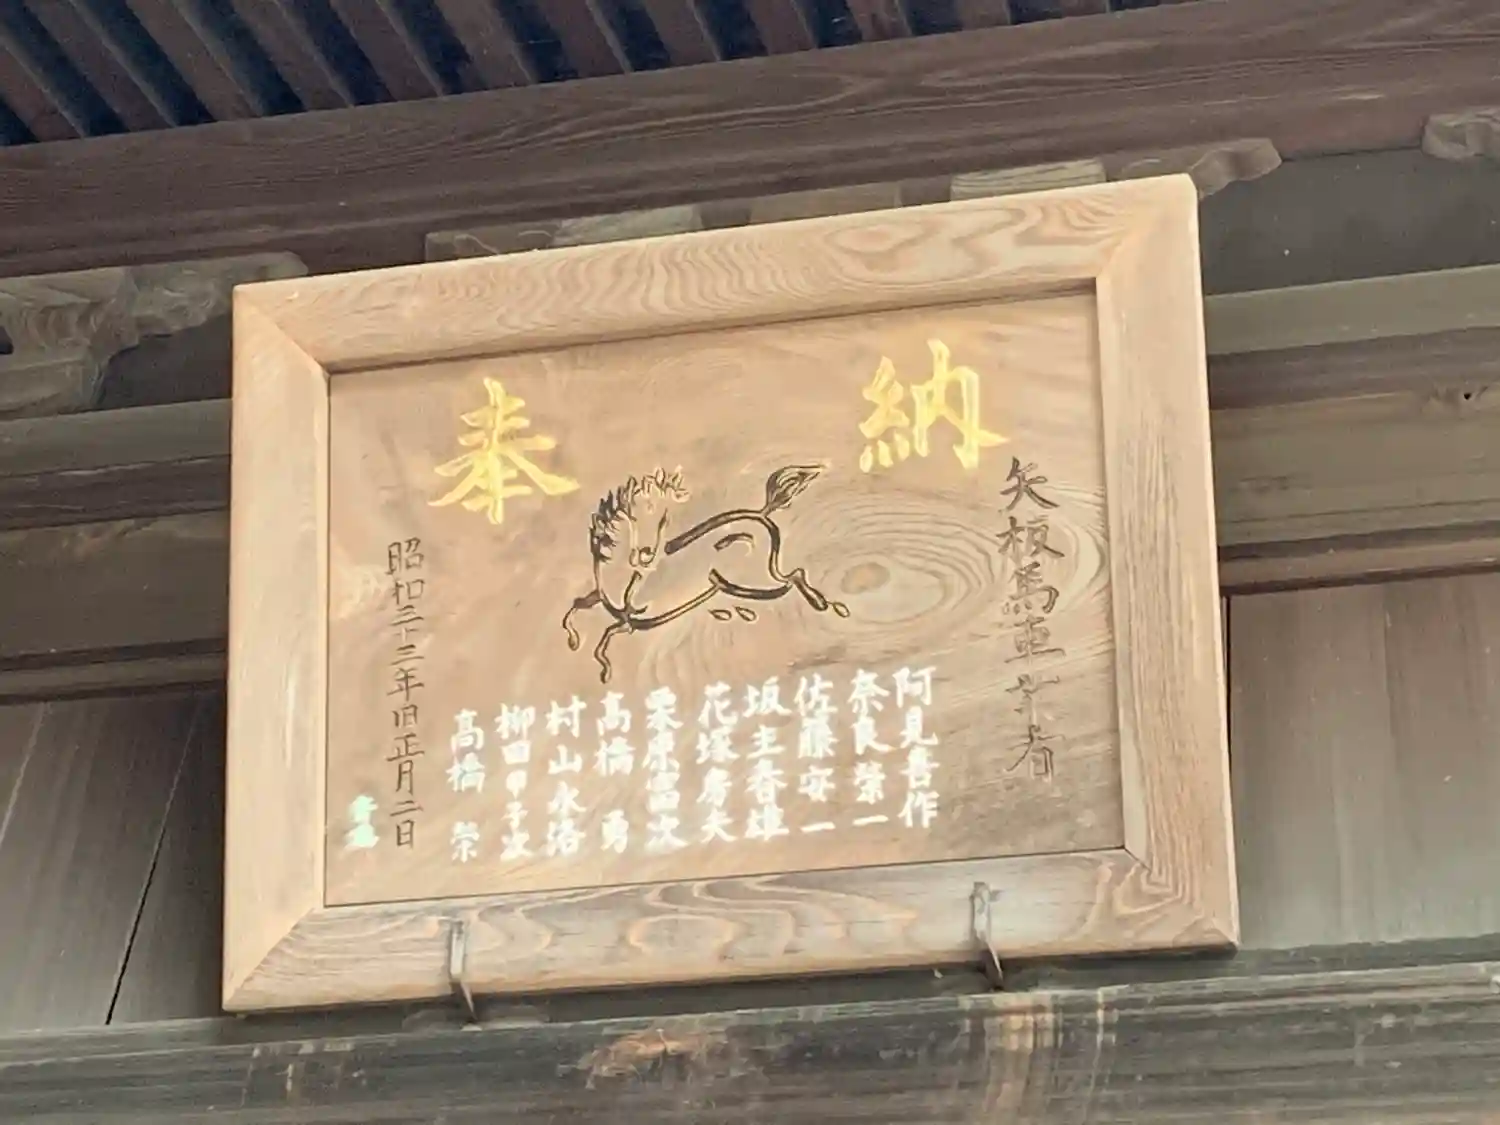 奉納
矢板馬車業者
阿見喜作
奈良榮一
佐藤安一
坂主春雄
花塚房夫
栗原富次
高橋 勇
村山永治
柳田甲子次
高橋 栄
昭和三十三年旧正月二日